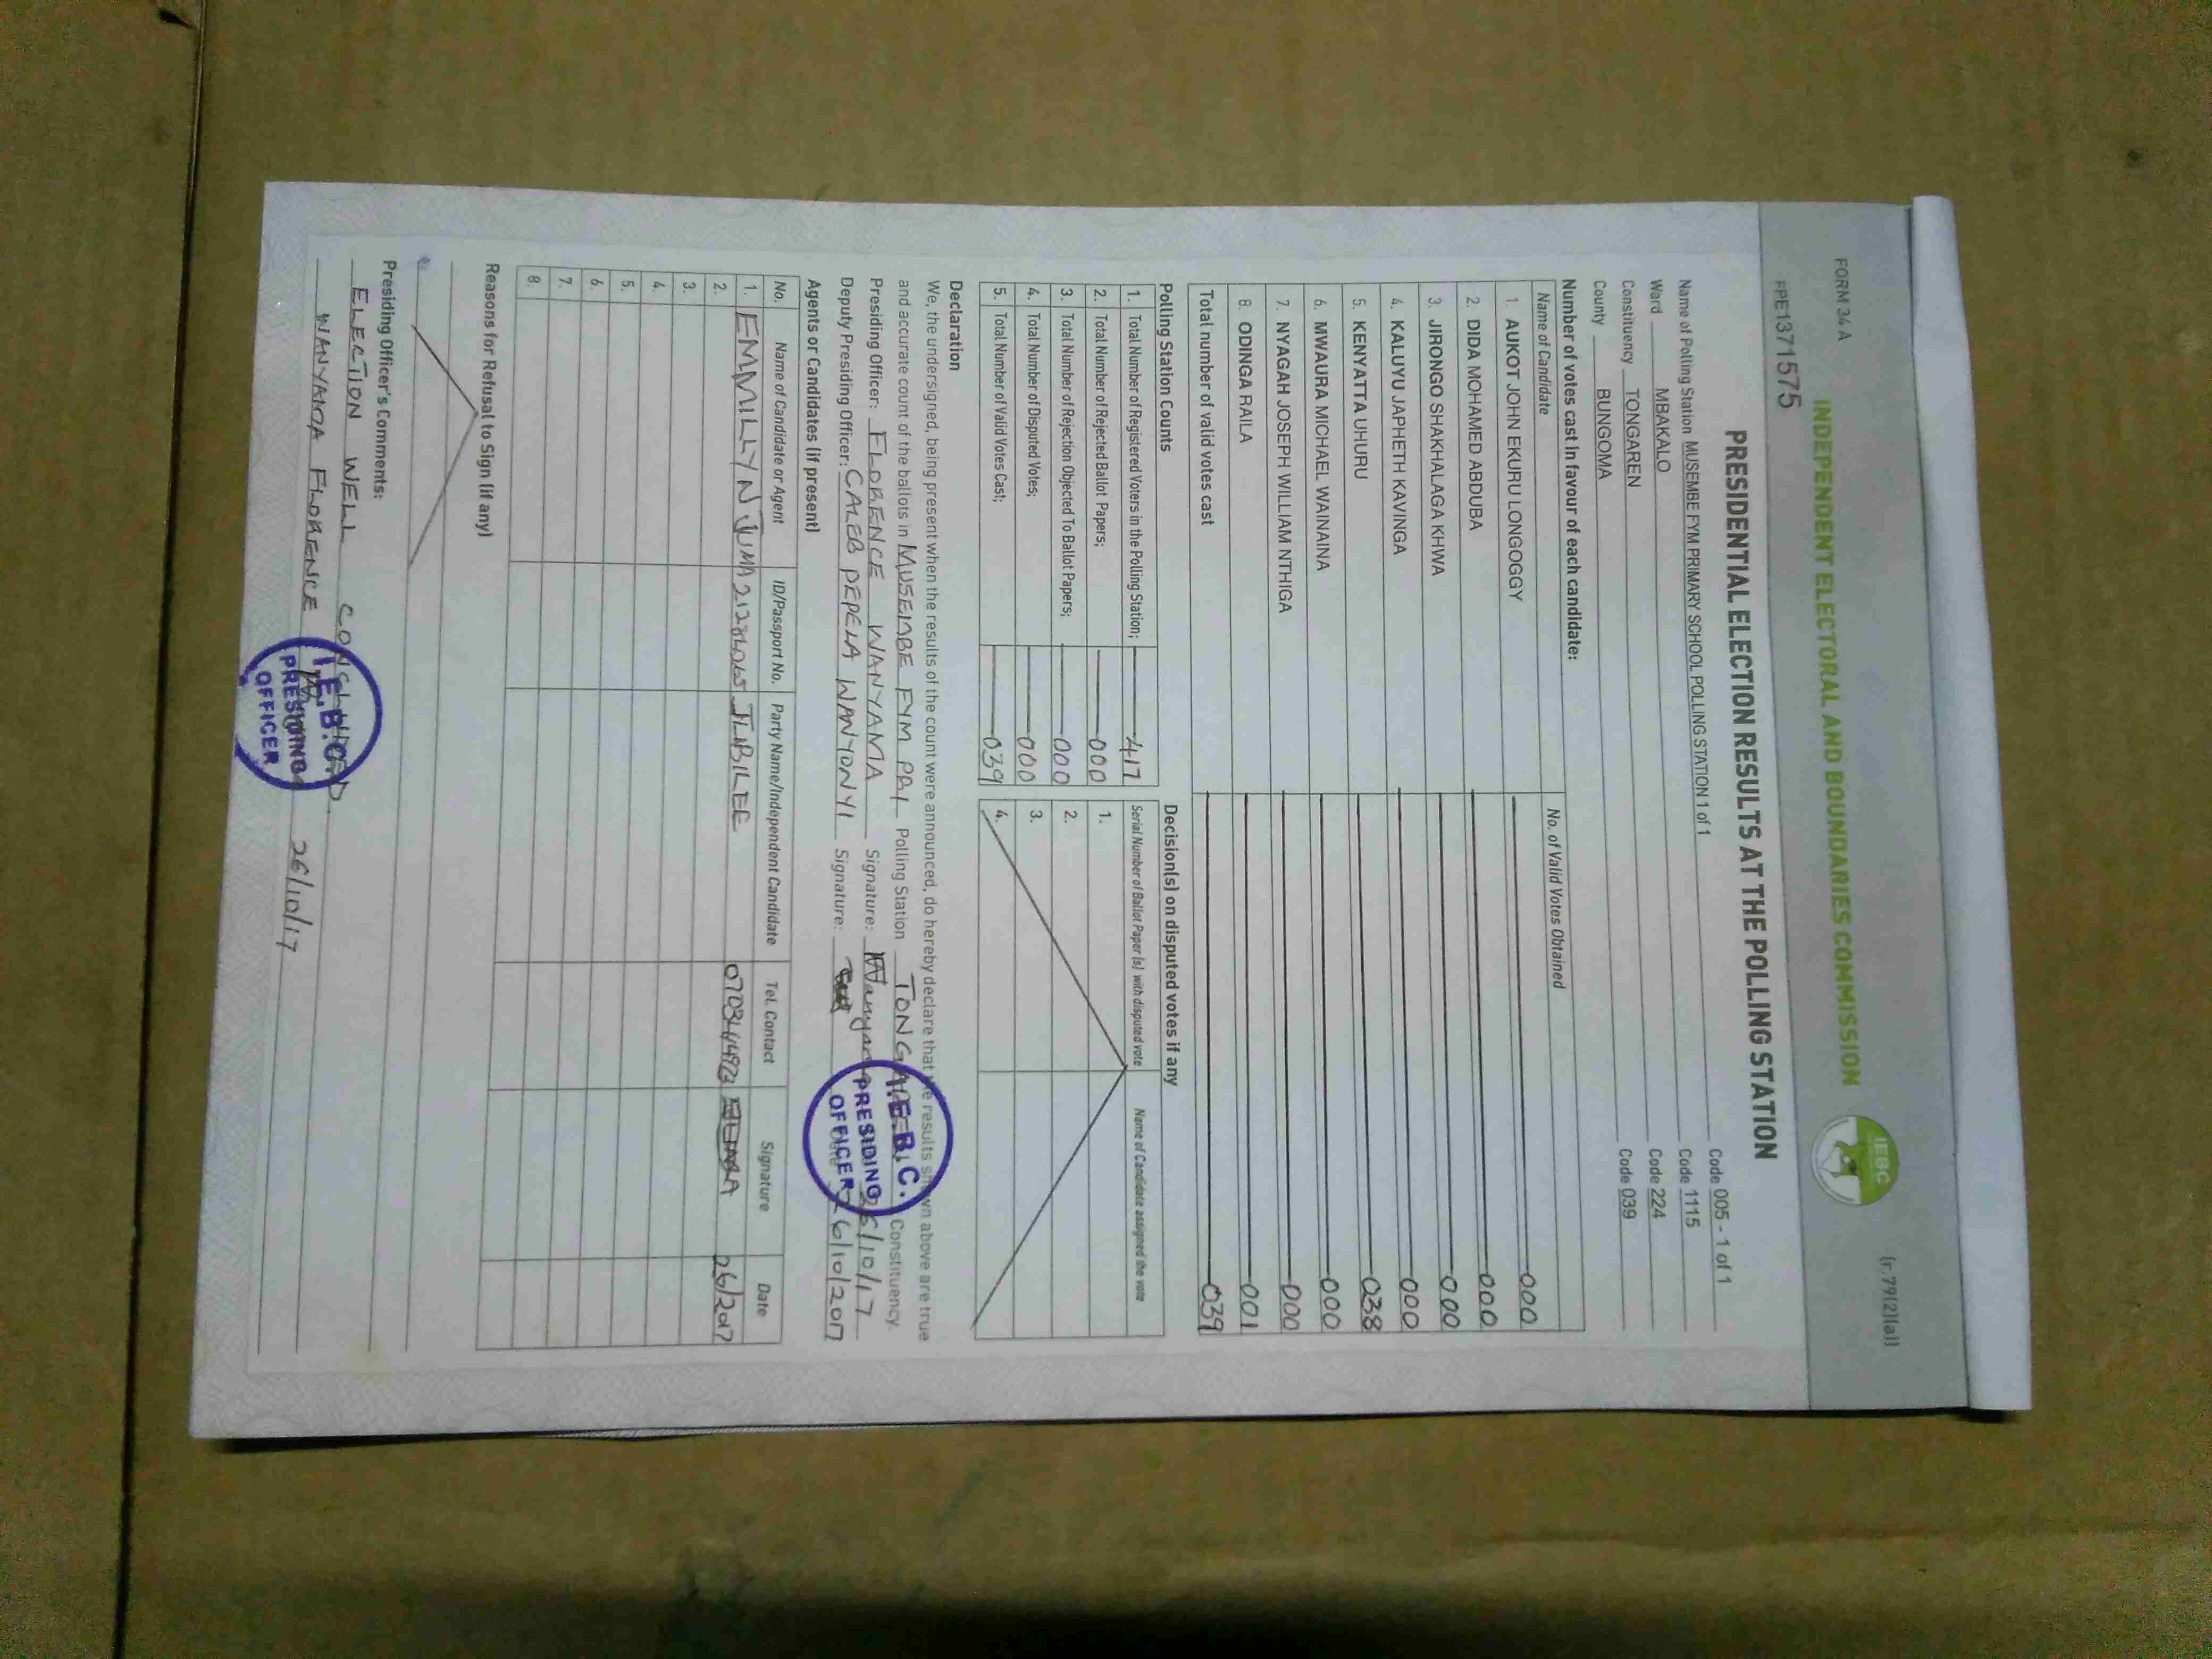 FORM 34 A
(r.79(2)(a))
INDEPENDENT ELECTORAL AND BOUNDARIES COMMISSION
IEBC
FPE1371575
PRESIDENTIAL ELECTION RESULTS AT THE POLLING STATION
Name of Polling Station MUSEMBE FYM PRIMARY SCHOOL POLLING STATION 1 of 1 Code 005 - 1 of 1
Ward MBAKALO Code 1115
Constituency TONGAREN Code 224
County BUNGOMA Code 039
Number of votes cast in favour of each candidate:
Name of Candidate No. of Valid Votes Obtained
1. AUKOT JOHN EKURU LONGOGGY 000
2. DIDA MOHAMED ABDUBA 000
3. JIRONGO SHAKHALAGA KHWA 000
4. KALUYU JAPHETH KAVINGA 000
5. KENYATTA UHURU 038
6. MWAURA MICHAEL WAINAINA 000
7. NYAGAH JOSEPH WILLIAM NTHIGA 000
8. ODINGA RAILA 001
Total number of valid votes cast 039
Polling Station Counts
1. Total Number of Registered Voters in the Polling Station; 417
2. Total Number of Rejected Ballot Papers; 000
3. Total Number of Rejection Objected To Ballot Papers; 000
4. Total Number of Disputed Votes; 000
5. Total Number of Valid Votes Cast; 039
Decision(s) on disputed votes if any
Serial Number of Ballot Paper (s) with disputed vote Name of Candidate assigned the vote
1.
2.
3.
4.
Declaration
We, the undersigned, being present when the results of the count were announced, do hereby declare that the results shown above are true
and accurate count of the ballots in MUSEMBE FYM PRI Polling Station TONGAREN Constituency.
Presiding Officer: FLORENCE WANYAMA Signature: Wanyama 26/10/17
Deputy Presiding Officer: CALEB PEPELA WANYONYI Signature: Date 26/10/2017
I.E.B.C.
PRESIDING
OFFICER
Agents or Candidates (if present)
No. Name of Candidate or Agent ID/Passport No. Party Name/Independent Candidate Tel. Contact Signature Date
1. EMMILLYN JUMA JUBILEE 26/2017
2.
3.
4.
5.
6.
7.
8.
Reasons for Refusal to Sign (if any)
Presiding Officer's Comments:
ELECTION WELL CONDUCTED.
WANYAMA FLORENCE 26/10/17
I.E.B.C.
PRESIDING
OFFICER